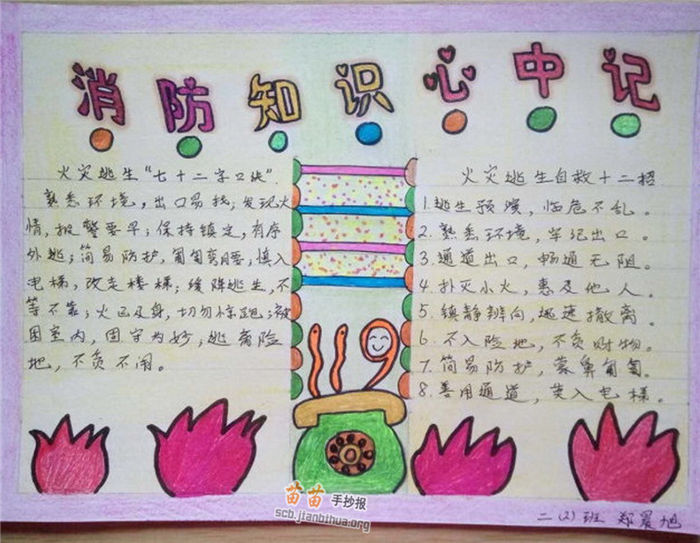 消防知识心中记
火灾逃生“七十二字口诀”
熟悉环境，出口易找；发现火
情，报警要早；保持镇定，有序
外逃；简易防护，匍匐弯腰；慎入
电梯，改走楼梯；缓降逃生，不
等不靠；火已及身，切勿惊跑；被
困室内，固守为妙；逃离险
地，不负不闹。
119
火灾逃生自救十二招
1.逃生预演，临危不乱。
2.熟悉环境，牢记出口。
3.通道出口，畅通无阻。
4.扑灭小火，惠及他人。
5.镇静辨向，迅速撤离。
6.不入险地，不负财物。
7.简易防护，蒙鼻匍匐。
8.善用通道，莫入电梯。
苗苗手抄报
scb.jianbihua.org
二(2)班 郑景旭